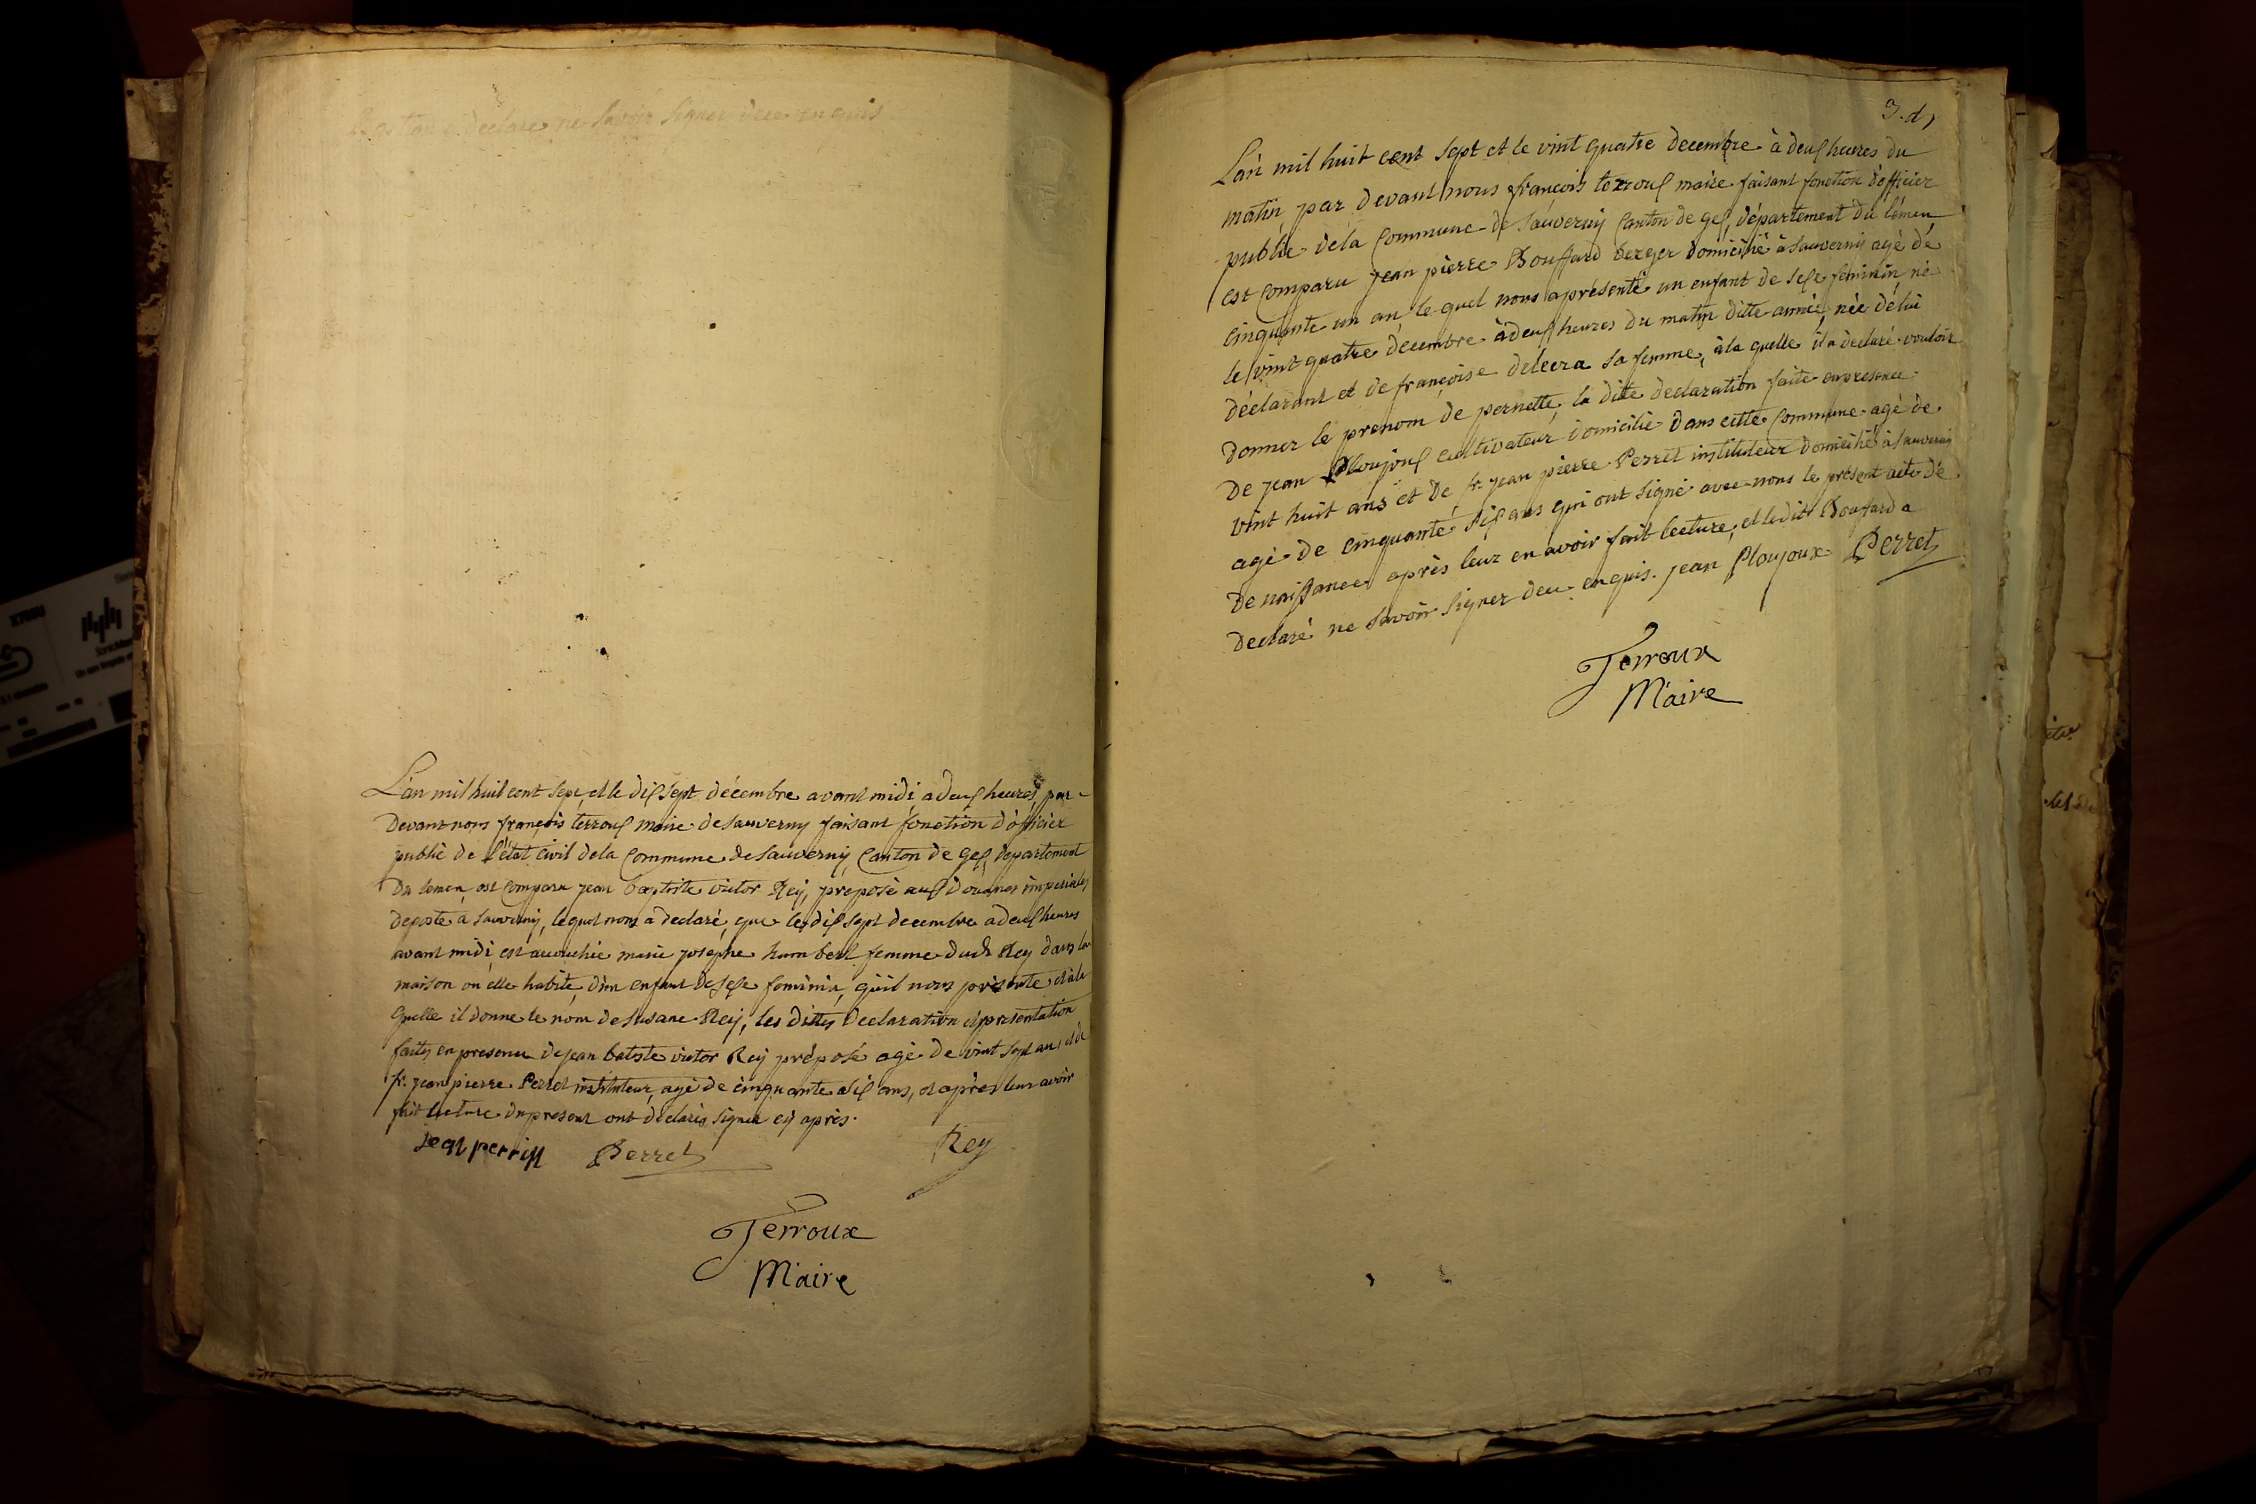 a declaré ne savoir signer de ce enquis
L'an mil huit cent sept, et le dix sept décembre avant midi, a deux heures, par-
devant nous françois terroux maire de sauverny faisant fonction d'officier
public de l'état civil de la Commune de Sauverny, Canton de gex, département
du leman, est comparu jean baptiste victor Rey, préposé aux douanes impériales
de poste à sauverny, lequel nous a declaré, que le dix sept decembre a deux heures
avant midi, est accouchée marie josephe humbert femme dudt Rey dans la
maison où elle habite, d'un enfant de sexe feminin, qu'il nous présente et à la
quelle il donne le nom de susane Rey, les dittes declaration et presentation
faites en presence de jean batste victor Rey préposé agé de vint sept ans et de
fr. jean pierre Perret instituteur, agé de cinquante six ans, et après leur avoir
fait lecture du present ont declarés signer cy après.
jean perrin Perret Rey
Terroux
Maire
3. d,
L'an mil huit cent sept et le vint quatre decembre à deux heures du
matin par devant nous françois terroux maire faisant fonction d'officier
public de la Commune de Sauverny Canton de gex, département du léman,
est Comparu jean pierre Bouffard berger domicilié à sauverny agé de
cinquante un an, le quel nous a présenté un enfant de sexe feminin né
le vint quatre decembre à deux heures du matin ditte année, née de lui
déclarant et de françoise delecra sa femme, à la quelle il a declaré vouloir
donner le prenom de pernette, la ditte declaration faite en presence
de jean Ploujoux cultivateur domicilié dans cette Commune agé de
vint huit ans et de fr. jean pierre Perret instituteur domicilié à sauverny
agé de cinquante six ans qui ont signé avec nous le présent acte de
de naissance après leur en avoir fait lecture, et ledit Bouffard a
declaré ne savoir signer de ce enquis. jean Ploujoux Perret
Terroux
Maire